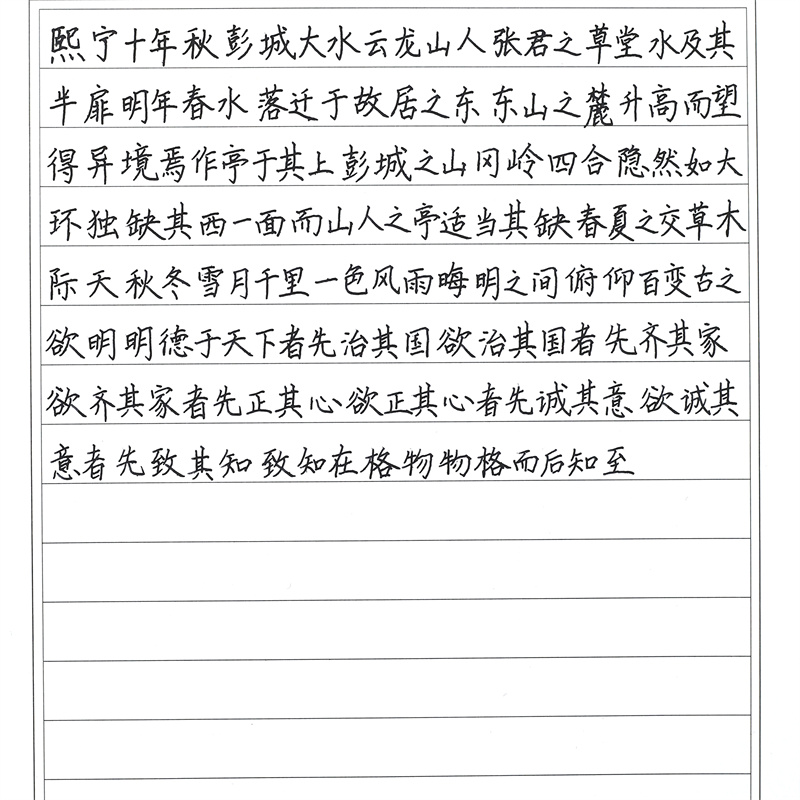 熙宁十年秋彭城大水云龙山人张君之草堂水及其
半扉明年春水落迁于故居之东东山之麓升高而望
得异境焉作亭于其上彭城之山冈岭四合隐然如大
环独缺其西一面而山人之亭适当其缺春夏之交草木
际天秋冬雪月千里一色风雨晦明之间俯仰百变古之
欲明明德于天下者先治其国欲治其国者先齐其家
欲齐其家者先正其心欲正其心者先诚其意欲诚其
意者先致其知致知在格物物格而后知至